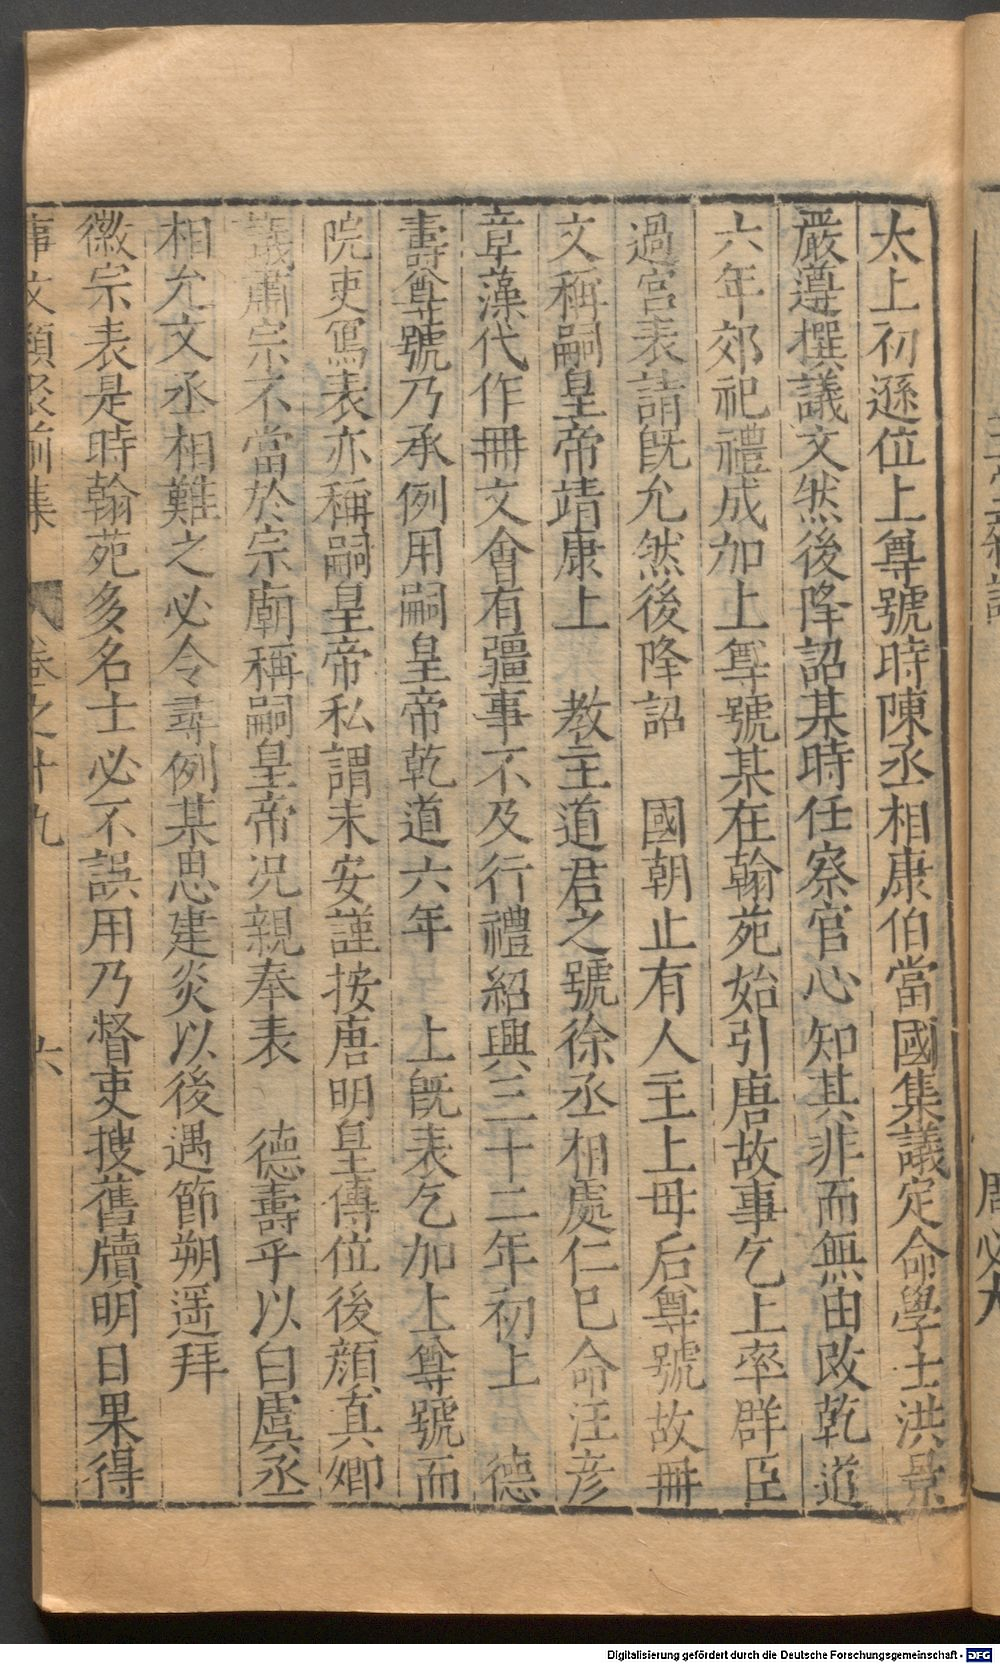 太上初遜位上尊號時陳丞相康伯當國集議定命學士洪景
嚴遵撰議文然後降詔某時任察官心知其非而無由改乾道
六年郊祀禮成加上尊號某在翰苑始引唐故事乞上率群臣
過宮表請旣允然後降詔 國朝止有人主上母后尊號故冊
文稱嗣皇帝靖康上 教主道君之號徐丞相處仁已命汪彦
章藻代作冊文會有疆事不及行禮紹興三十二年初上 德
壽尊號乃承例用嗣皇帝乾道六年 上旣表乞加上尊號而
院吏寫表亦稱嗣皇帝私謂未安謹按唐明皇傳位後顔真卿
議肅宗不當於宗廟稱嗣皇帝况親奉表 德壽乎以白虞丞
相允文丞相難之必令尋例某思建炎以後遇節朔遥拜
徽宗表是時翰苑多名士必不誤用乃督吏搜舊牘明日果得
事文類聚前集 卷之十九 六
周必大
Digitalisierung gefördert durch die Deutsche Forschungsgemeinschaft - DFG